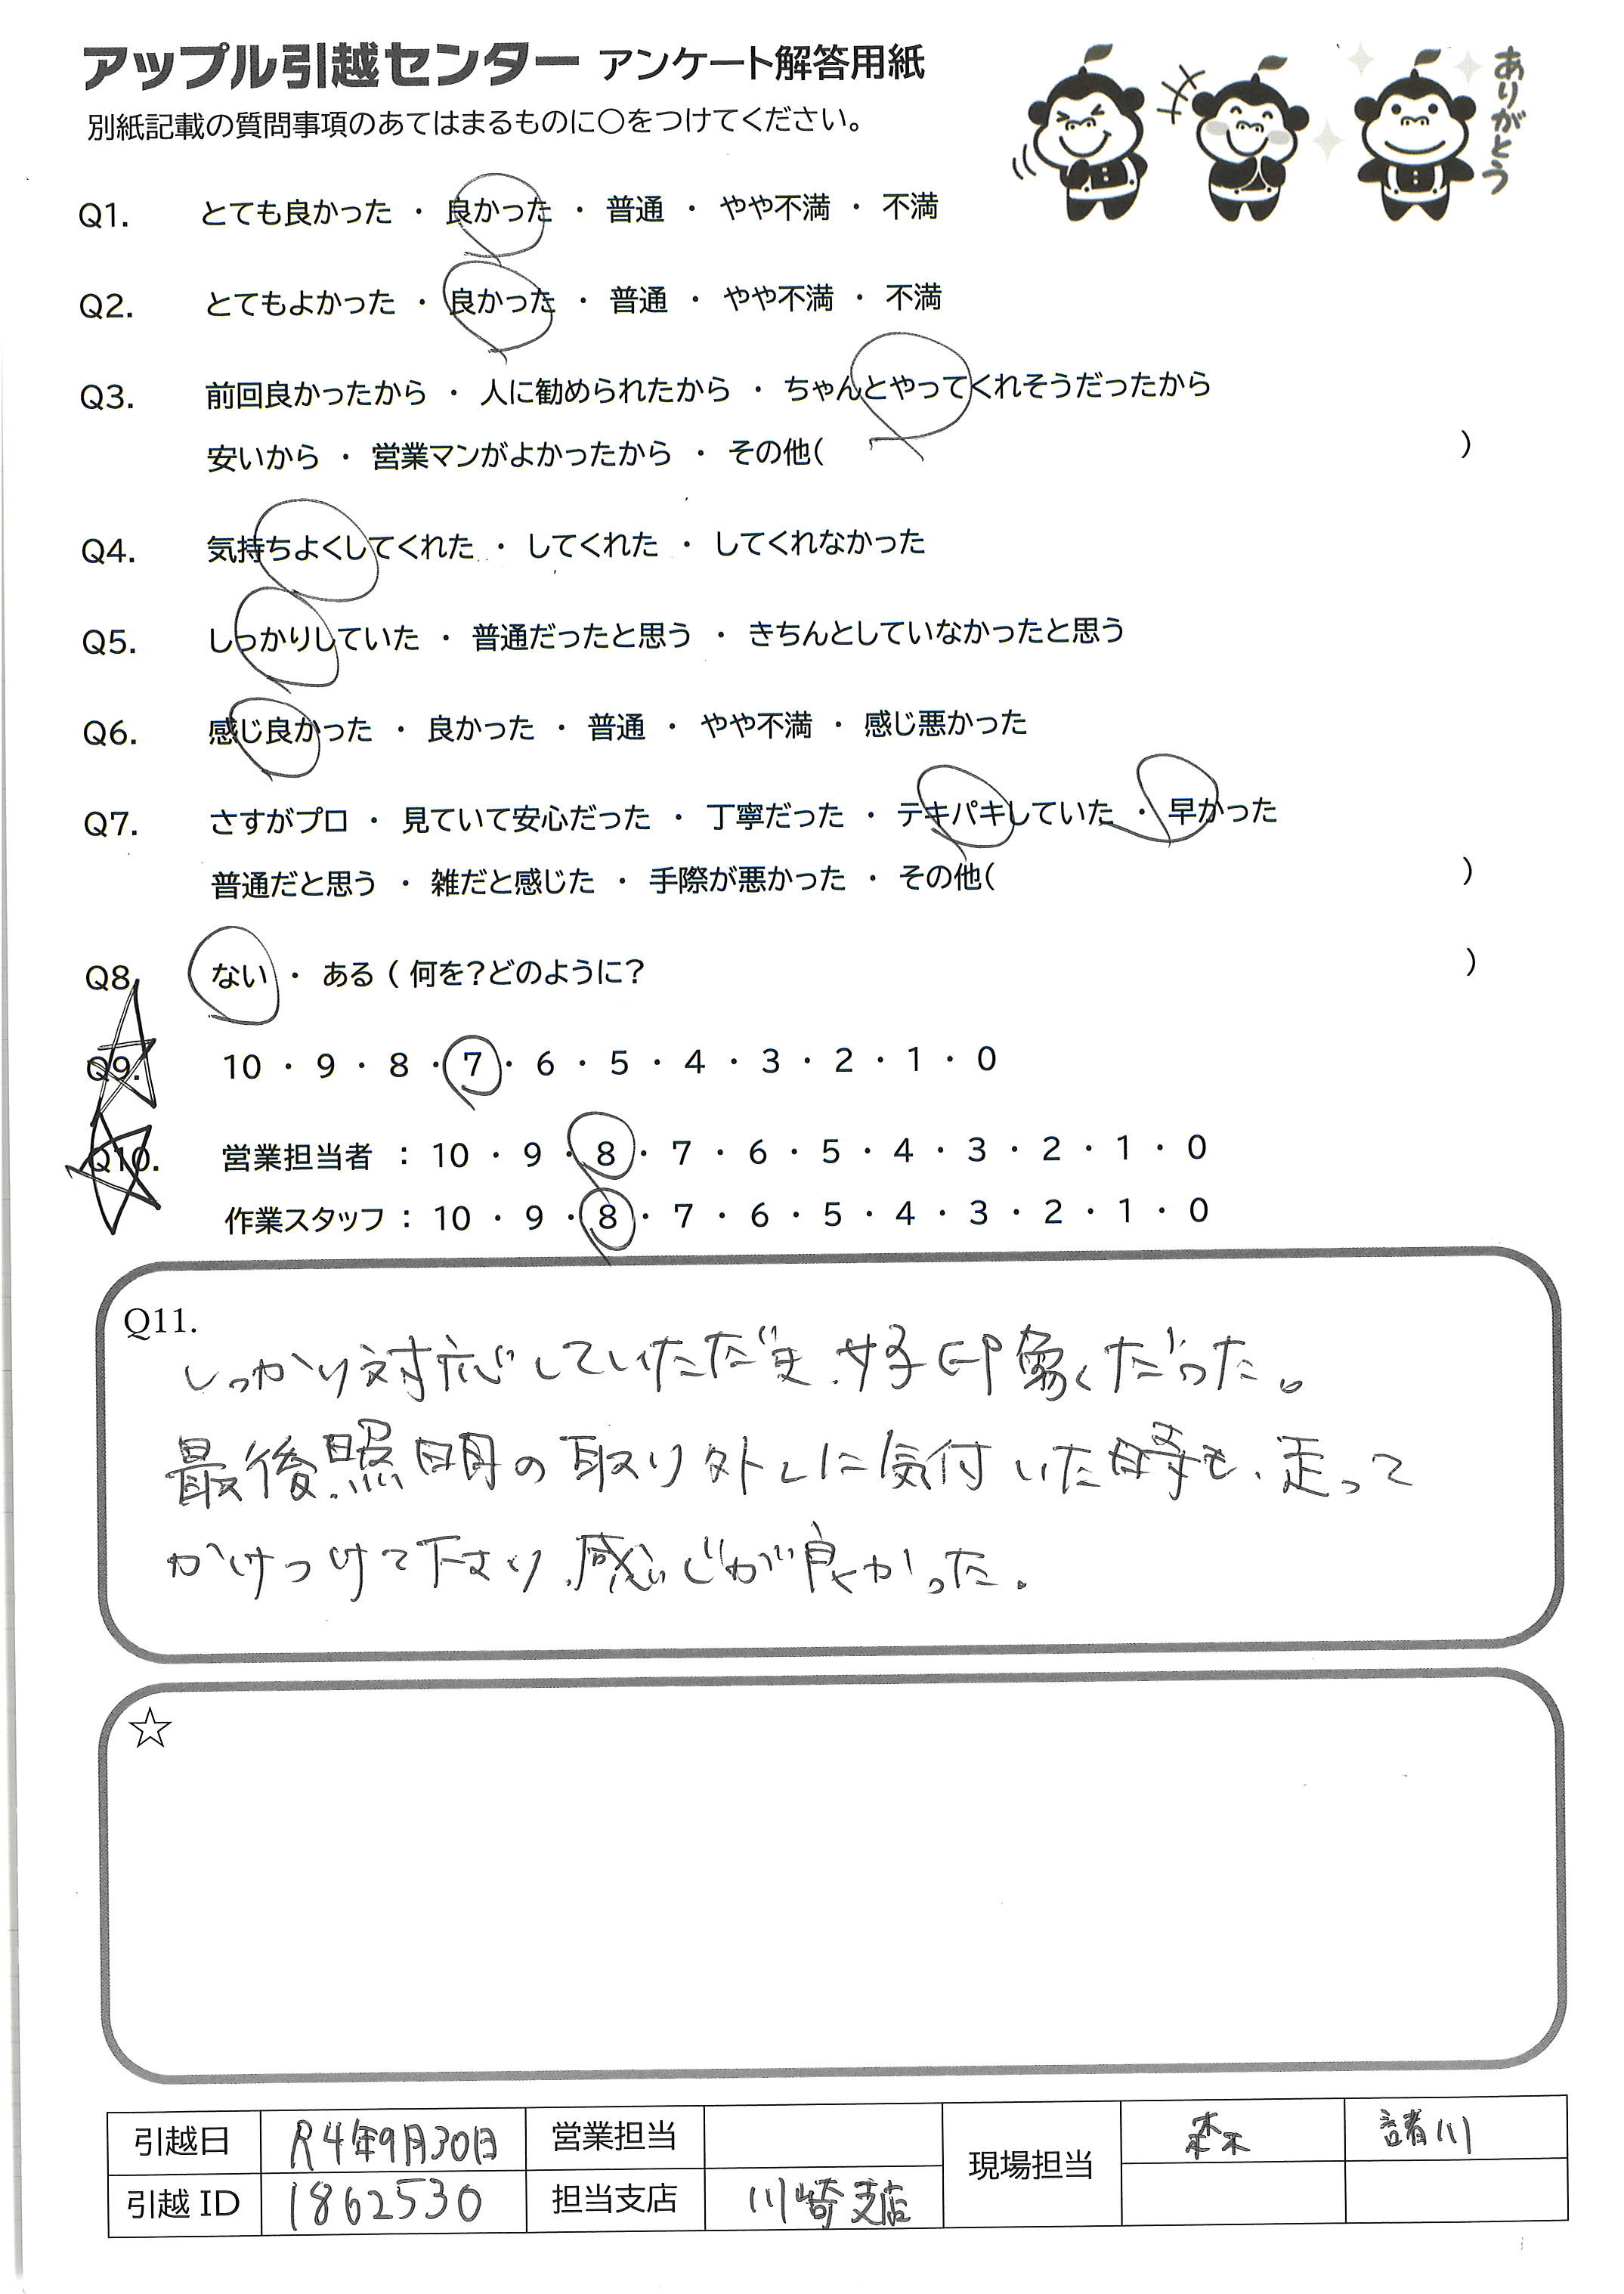 アップル引越センター アンケート解答用紙
ありがとう
別紙記載の質問事項のあてはまるものに○をつけてください。
Q1. とても良かった ・ 良かった ・ 普通 ・ やや不満 ・ 不満
Q2. とてもよかった ・ 良かった ・ 普通 ・ やや不満 ・ 不満
Q3. 前回良かったから ・ 人に勧められたから ・ ちゃんとやってくれそうだったから
安いから ・ 営業マンがよかったから ・ その他( )
Q4. 気持ちよくしてくれた ・ してくれた ・ してくれなかった
Q5. しっかりしていた ・ 普通だったと思う ・ きちんとしていなかったと思う
Q6. 感じ良かった ・ 良かった ・ 普通 ・ やや不満 ・ 感じ悪かった
Q7. さすがプロ ・ 見ていて安心だった ・ 丁寧だった ・ テキパキしていた ・ 早かった
普通だと思う ・ 雑だと感じた ・ 手際が悪かった ・ その他( )
Q8. ない ・ ある ( 何を?どのように? )
Q9. 10 ・ 9 ・ 8 ・ 7 ・ 6 ・ 5 ・ 4 ・ 3 ・ 2 ・ 1 ・ 0
Q10. 営業担当者 : 10 ・ 9 ・ 8 ・ 7 ・ 6 ・ 5 ・ 4 ・ 3 ・ 2 ・ 1 ・ 0
作業スタッフ : 10 ・ 9 ・ 8 ・ 7 ・ 6 ・ 5 ・ 4 ・ 3 ・ 2 ・ 1 ・ 0
Q11.
しっかり対応していただき、好印象くだった。
最後、照明の取り外しに気付いた時も、走って
かけつけて下さり、感じが良かった。
☆
引越日 R4年9月30日 営業担当 現場担当 森 諸川
引越 ID 1862530 担当支店 川崎支店